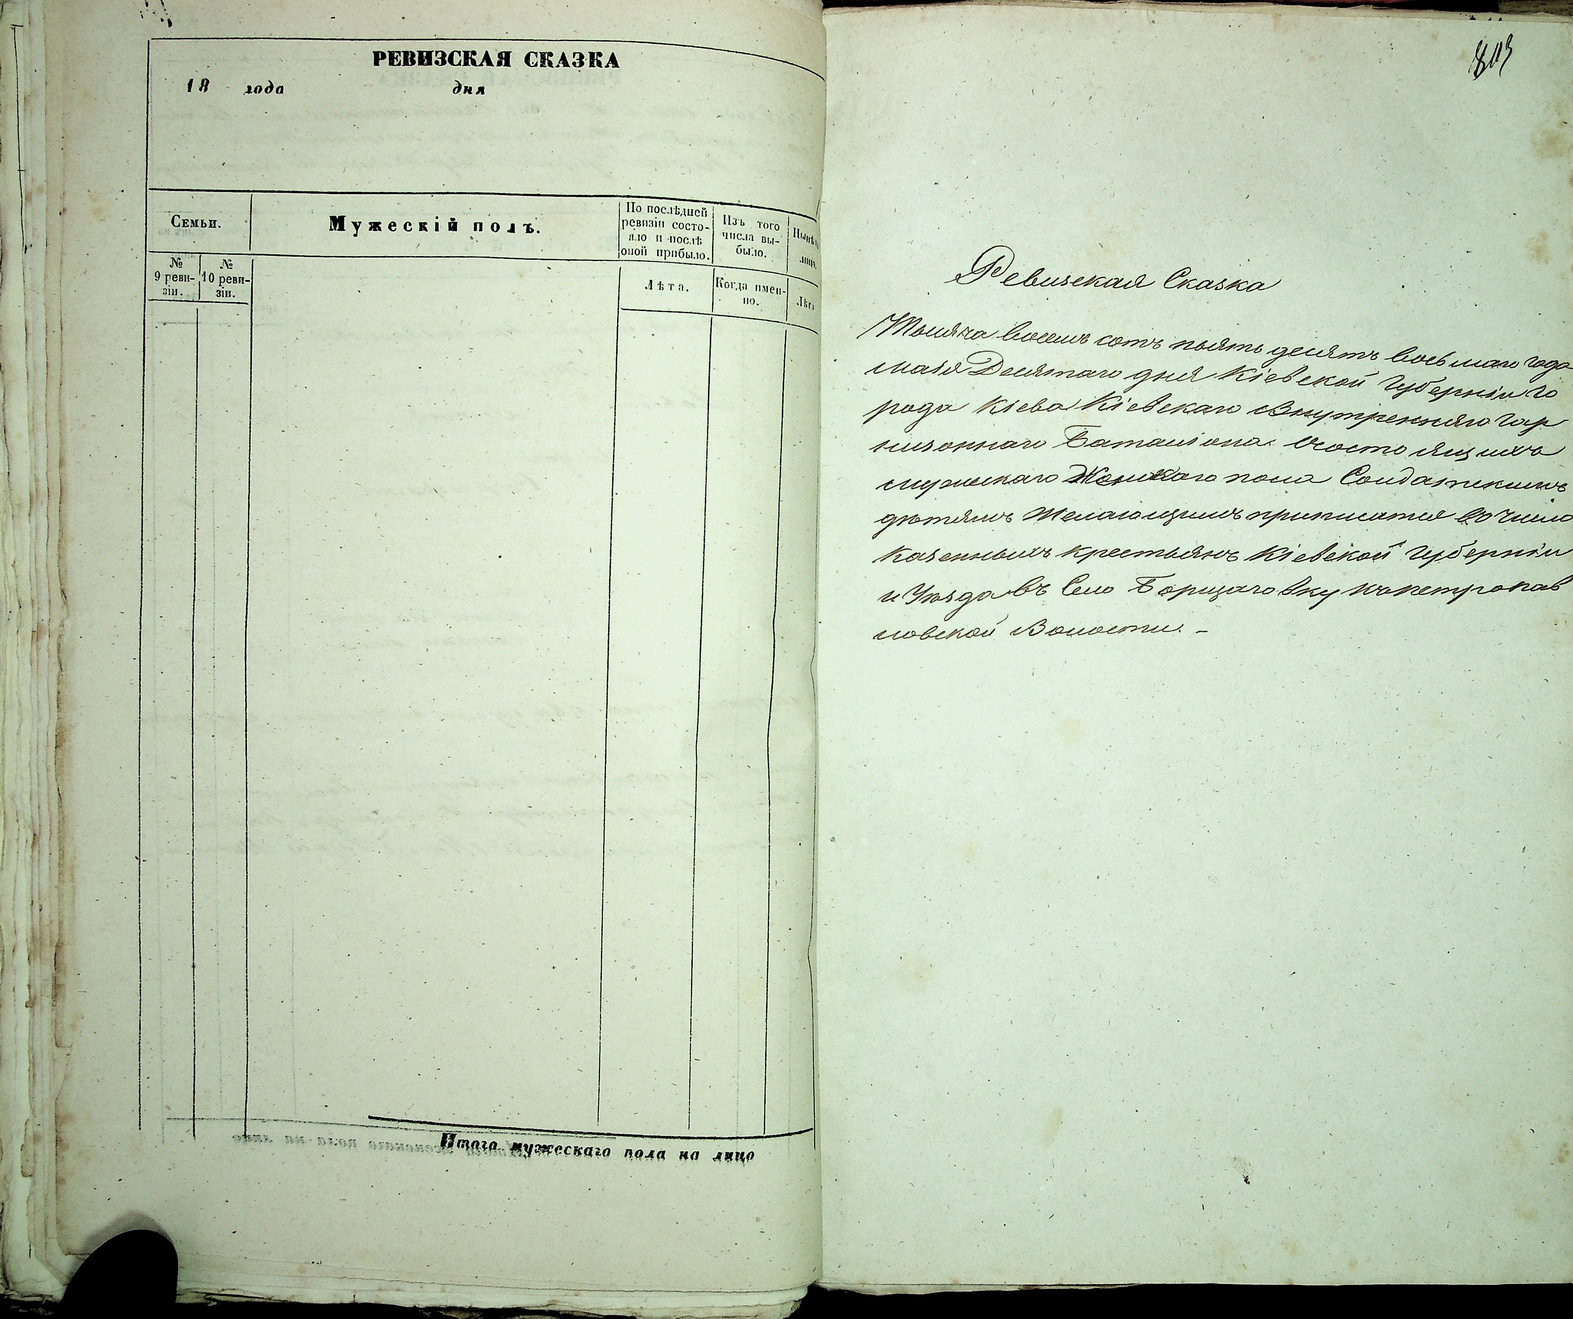 РЕВИЗСКАЯ СКАЗКА
18 года дня
Семьи.
Мужескій полъ.
По послѣдней
ревизіи состо-
яло и послѣ
оной прибыло.
Изъ того
числа вы-
было.
№
9 реви-
зіи.
№
10 реви-
зіи.
Лѣта.
Когда имен-
но.
Итого мужескаго пола на лицо
Ревизская Сказка
Тысяча восемь сотъ пять десятъ восьмаго года
маія Десятаго дня Кіевской Губерніи Го
рода Кіева Кіевскаго Внутренняго Гар
низоннаго Баталіона состоящихъ
мужескаго Женскаго пола Солдатскимъ
дѣтямъ желающимъ приписатся во число
казенныхъ крестьянъ Кіевской Губерніи
и Уѣзда въ Село Борщаговку Петропав
ловской Волости. –